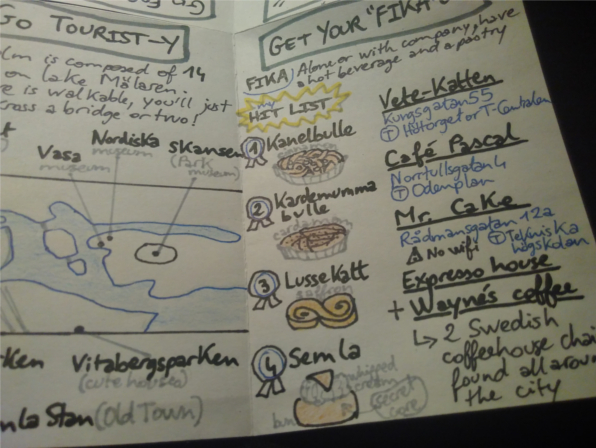 GO TOURIST-Y
is composed of 14
on Lake Mälaren.
is walkable, you'll just
cross a bridge or two!
Nordiska
museum
Skansen
(Park
museum)
Vasa
museum
Vitabergsparken
(cute houses)
mla Stan (Old Town)
GET YOUR "FIKA
FIKA: Alone or with company, have
a hot beverage and a pastry
my
HIT LIST
1 Kanelbulle
2 Kardemumma
bulle
cardamom
3 Lussekatt
saffron
4 Semla
whipped
cream
bun
secret
core
Vete-Katten
Kungsgatan 55
T Hötorget or T-Centralen
Café Pascal
Norrtullsgatan 4
T Odenplan
Mr. Cake
Rådmansgatan 12a
No wifi
T Tekniska
högskolan
Expresso house
+ Wayne's coffee
↳ 2 Swedish
coffeehouse chai
found all arou
the city